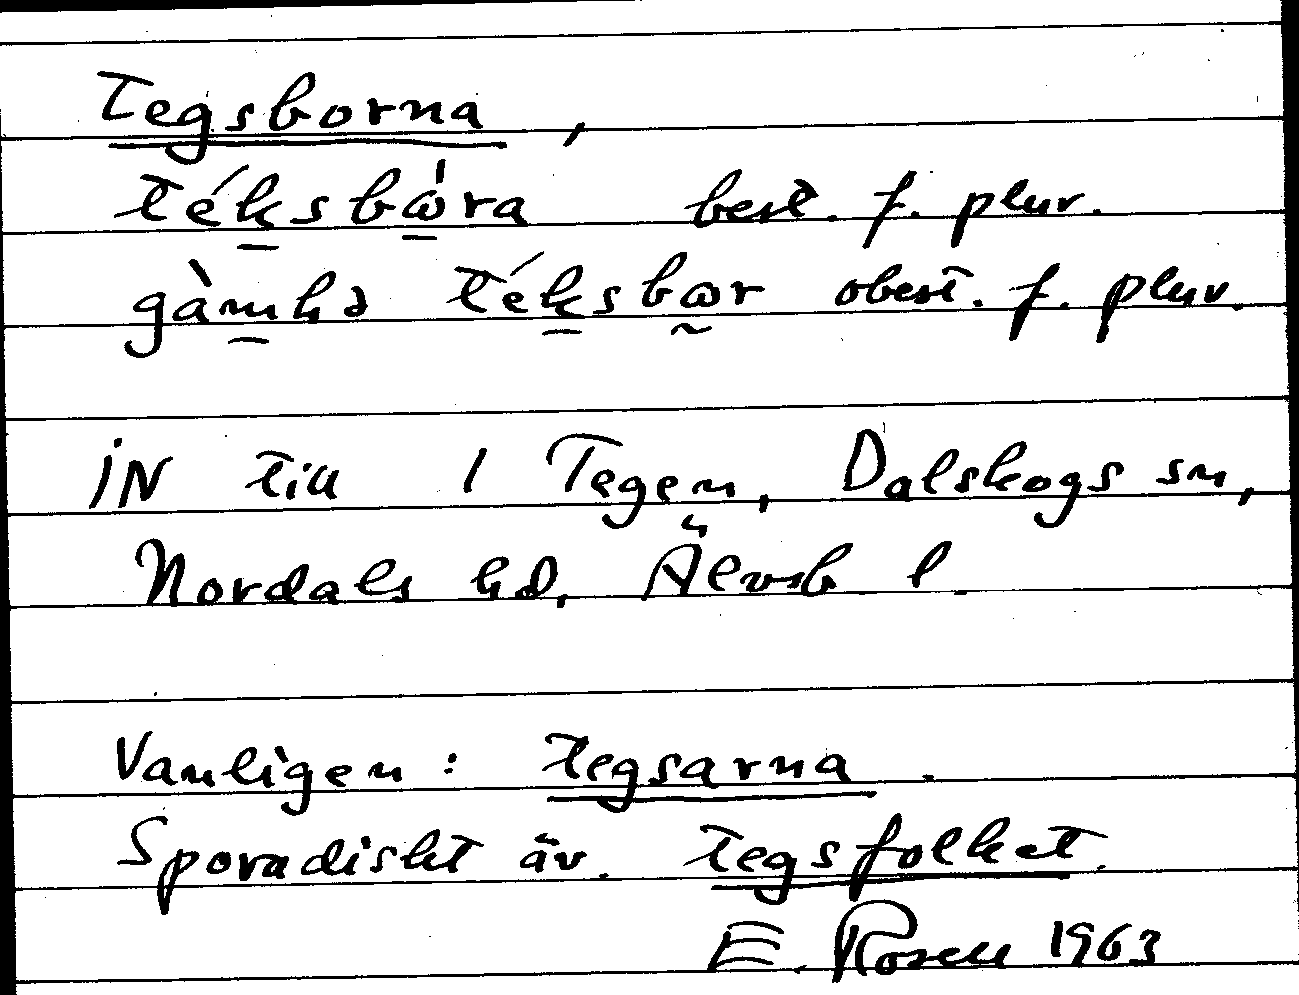 Tegsborna,
téksbω̇ra best. f. plur.
gàmlə téksbωr obest. f. plur.
iN till 1 Tegen, Dalskogs sn,
Nordals hd, Älvsb l.
Vanligen: tegsarna.
Sporadiskt äv. tegsfolket.
E. Rosell 1963